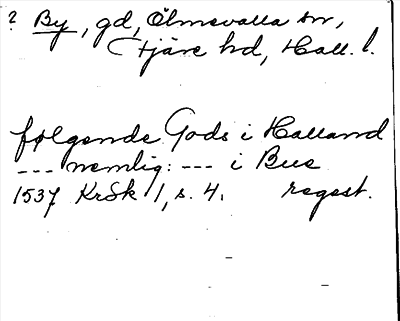 ? By, gd, Ölmevalla sn,
Fjäre hd, Hall. l.
følgende Gods i Halland
--- nemlig: --- i Bue
1537 KrSk 1, s. 4. regest.